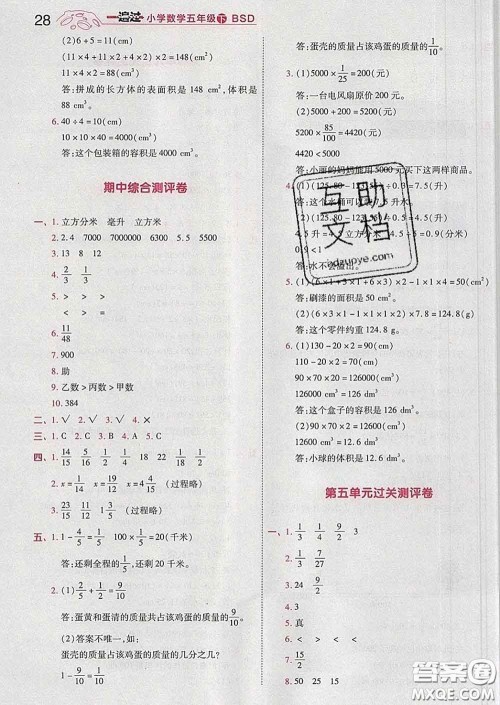 28 一遍过 小学数学五年级 下 BSD
(2)6+5=11(cm)
(11×4+11×2+4×2)×2=148(cm²)
11×4×2=88(cm³)
答:拼成的长方体的表面积是 148 cm²,体积是
88 cm³。
6. 40÷4=10(cm)
10×10×40=4000(cm³)
答:这个包装箱的容积是 4000 cm³。
期中综合测评卷
一、1. 立方分米 毫升 立方米
2. 2.4 7000 7000000 6000 6000
3. 13 8 12
4. 2/3 1/3
5. > > > >
6. 11/48
7. 900
8. 勋
9. 乙数>丙数>甲数
10. 384
二、1. √ 2. × 3. × 4. √ 5. ×
三、1. C 2. C 3. B 4. A 5. C
四、1. 14/15 5/16 1/2 19/18 1/3 6/15
2. x= x= x=4 x= (过程略)
3. 1/4 (过程略)
五、1. 1-4/5=1/5 100×1/5=20(千米)
答:还剩全程的1/5,还剩 20 千米。
2. (1)2/5+1/2=9/10
答:蛋黄和蛋清的质量共占该鸡蛋的质量的9/10。
(2)答案不唯一,如:
蛋壳的质量占该鸡蛋的质量的几分之几?
1-9/10=1/10
答:蛋壳的质量占该鸡蛋的质量的1/10。
3. (1)5000×1/25=200(元)
答:一台电风扇原价 200 元。
(2)5000+200=5200(元)
5200×85/100=4420(元)
4420<5000
答:小丽的妈妈能用 5000 元买下这两样商品。
4. (1)(125.80-
答:这水桶可以装 7.5 升水。
(2)(125.80-
4.5 升=4.5 立方
0.9<1
答:水不会溢出。
5. (1)(6×1+5×1+6×3)×2-1×1×4=50(cm²)
答:刷漆的面积是 50 cm²。
(2)(6×3×1-1×1×2)×7.8=124.8(g)
答:这个零件约重 124.8 g。
6. (1)130-20×2=90(cm)
110-20×2=70(cm)
90×70×20=126000(cm³)
126000 cm³=126 dm³
答:这个盒子的容积是 126 dm³。
(2)90×70×2=12600(cm³)
12600 cm³=12.6 dm³
答:小球的体积是 12.6 dm³。
第五单元过关测评卷
一、1. 1/3 1/4 9/2 3
2. 1/6 7/24
3. 24 9/10
4. 3
5. 真
6. < < < >
7. 15/2
8. 50 25 15
互助文档
adzuoye.com
答案圈
MXQE.COM